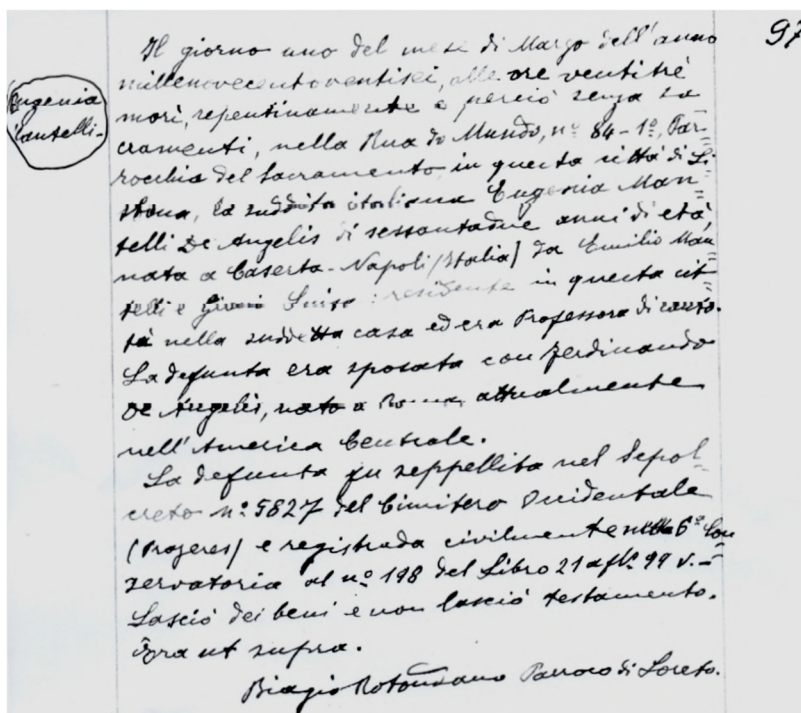 97
Il giorno uno del mese di Marzo dell'anno
millenovecentoventisei, alle ore ventitrè
Eugenia
Mantelli.
morì, repentinamente e perciò senza sa
cramenti, nella Rua do Mundo, nº 84-1º, Par=
rocchia del Sacramento in questa città di Li=
sbona, la suddita italiana Eugenia Man=
telli De Angelis di sessantadue anni di età,
nata a Caserta-Napoli (Italia) da Emilio Man=
telli e Luisa: residente in questa cit=
tà nella suddetta casa ed era Professora di canto.
La defunta era sposata con Ferdinando
De Angelis, nato a Roma, attualmente
nell'America Centrale.
La defunta fu seppellita nel Sepol-
creto nº 5827 del Cimitero Occidentale
(Prazeres) e registrada civilmente nella 6ª Con
servatoria al nº 198 del Libro 21 a flº 99 v.-
Lasciò dei beni e non lasciò testamento.
Era ut supra.
Biagio Rotondano Parroco di Loreto.